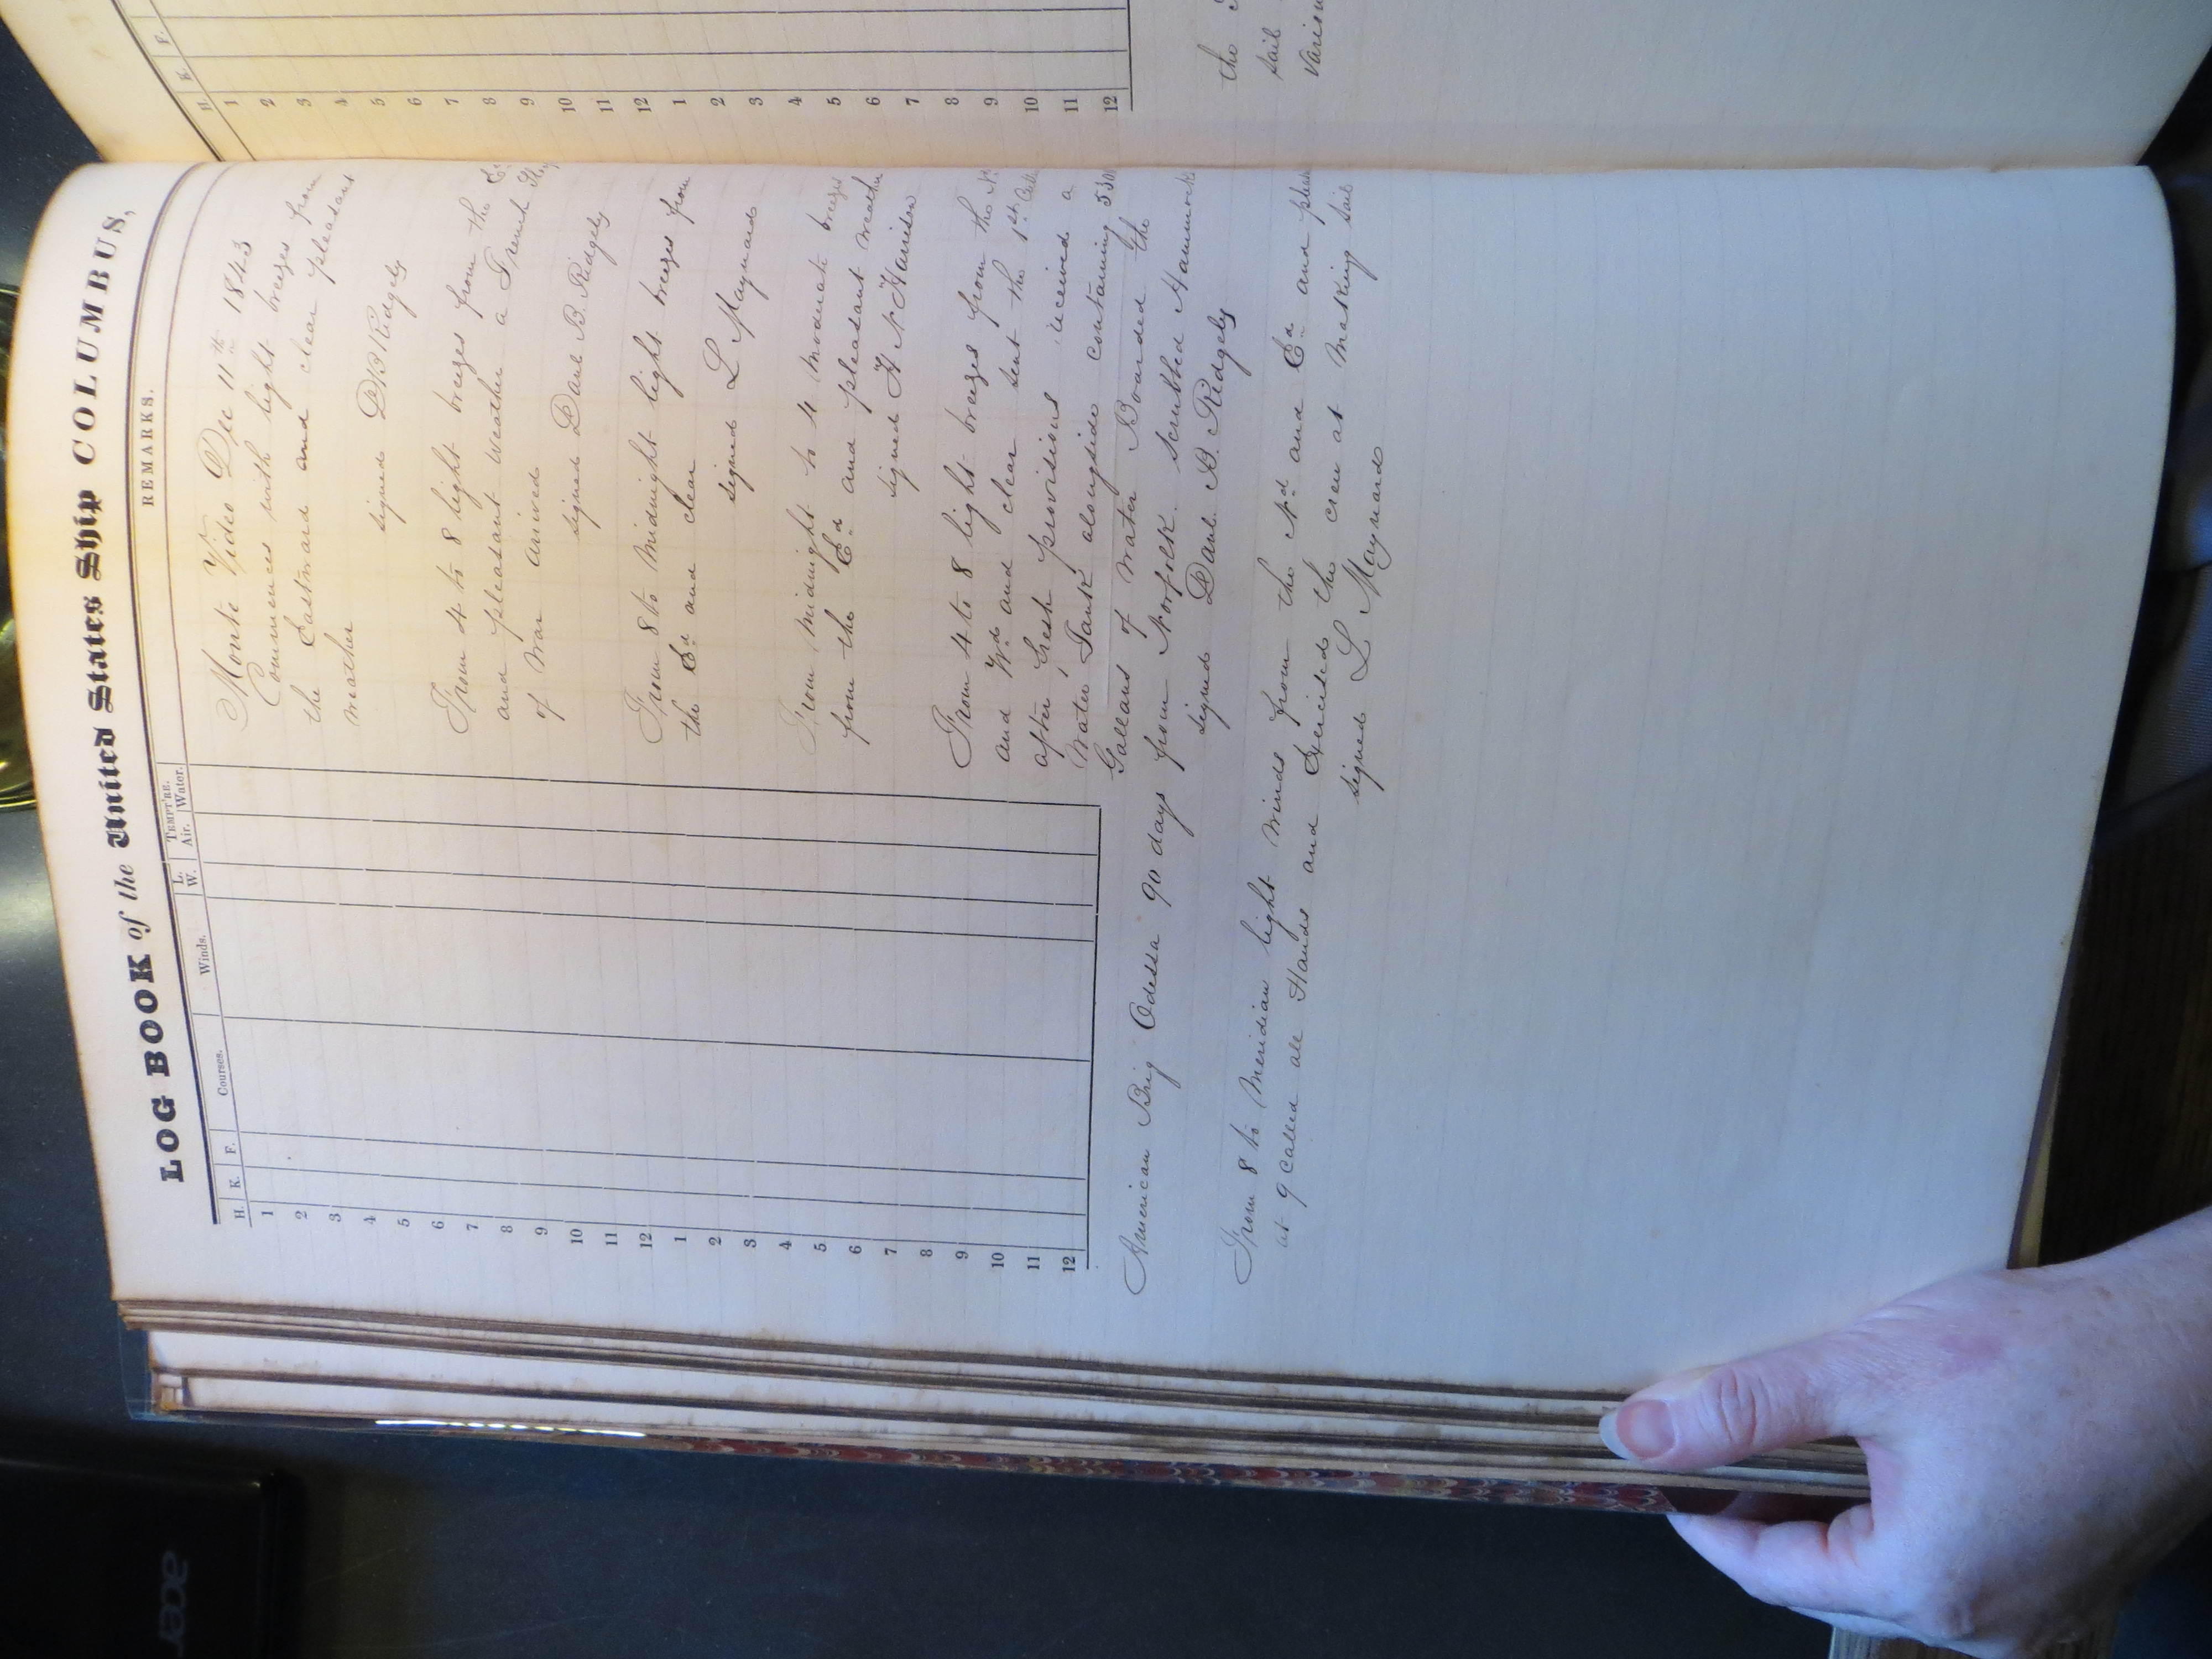 LOG BOOK of the United States Ship COLUMBUS,
H. K. F. Courses. Winds. L. W. TEMPT'RE. Air. Water. REMARKS.
1
2
3
4
5
6
7
8
9
10
11
12
1
2
3
4
5
6
7
8
9
10
11
12
Monte Video Dec 11th 1843
Commences with light breezes from
the Eastward and clear pleasant
weather
signed DB Ridgely
From 4 to 8 light breezes from the Ed
and pleasant weather a French Sloop
of War arrived
signed Danl B. Ridgely
From 8 to Midnight light breezes from
the Ed and clear
signed L Maynard
From Midnight to 4 Moderate breezes
from the Ed and pleasant weather
signed H N Harrison
From 4 to 8 light breezes from the N
and Wd and clear sent the 1st Cutter
after fresh provisions received a
Water Tank alongside containing 530
Gallons of Water Boarded the
American Brig Odessa 90 days from Norfolk. Scrubbed Hammocks
signed Danl. B. Ridgely
From 8 to Meridian light winds from the Nd and Ed and
at 9 Called all Hands and Exercised the crew at making sail
signed L Maynard
H. K. F.
1
2
3
4
5
6
7
8
9
10
11
12
1
2
3
4
5
6
7
8
9
10
11
12
the
sail
acer